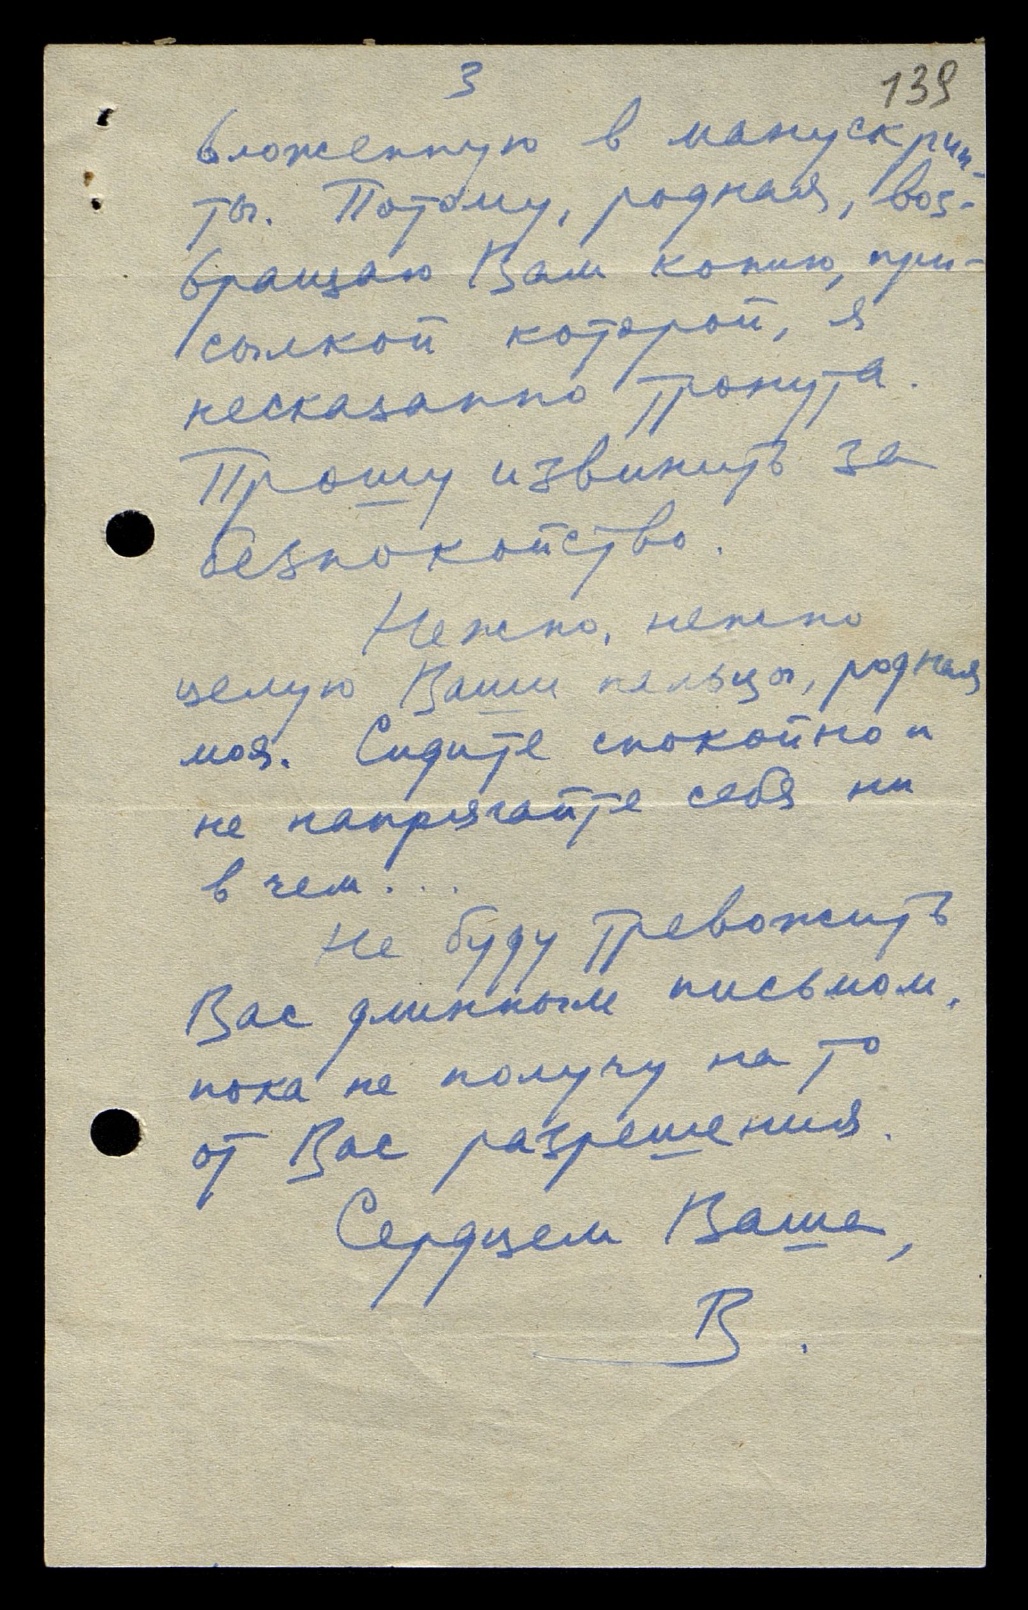 3
139
вложенную в манускрип-
ты. Потому, родная, воз-
вращаю Вам копию, при-
сылкой которой, я
несказанно тронута.
Прошу извинить за
безпокойство.
Нежно, нежно
целую Ваши пальцы, родная
моя. Сидите спокойно и
не напрягайте себя ни
в чем...
Не буду тревожить
Вас длинным письмом,
пока не получу на то
от Вас разрешения.
Сердцем Ваша,
В.